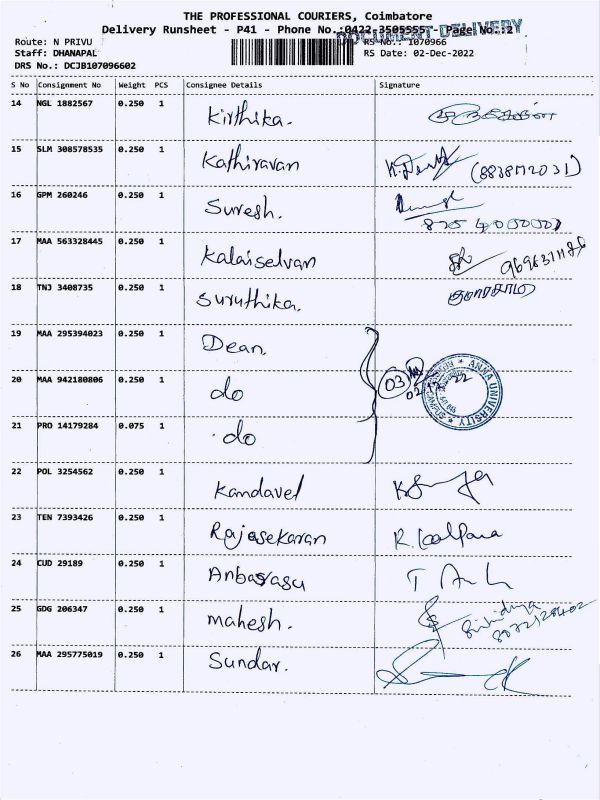 THE PROFESSIONAL COURIERS, Coimbatore
Delivery Runsheet - P41 - Phone No.:0422-3505555 - Page No.:2
DOCUMENT DELIVERY
Route: N PRIVU
RS No.: 1070966
Staff: DHANAPAL
RS Date: 02-Dec-2022
DRS No.: DCJB107096602
S No Consignment No Weight PCS Consignee Details Signature
14 NGL 1882567 0.250 1 Kirthika.
15 SLM 308578535 0.250 1 Kathiravan
16 GPM 260246 0.250 1 Suresh.
17 MAA 563328445 0.250 1 Kalaiselvan
18 TNJ 3408735 0.250 1 Suruthika. குமாரசாமி
19 MAA 295394023 0.250 1 Dean.
20 MAA 942180806 0.250 1 do 03
ANNA UNIVERSITY
21 PRO 14179284 0.075 1 do
22 POL 3254562 0.250 1 Kandavel
23 TEN 7393426 0.250 1 Rajasekaran R. Kalpana
24 CUD 29189 0.250 1 Anbarasu
25 GDG 206347 0.250 1 mahesh.
26 MAA 295775019 0.250 1 Sundar.